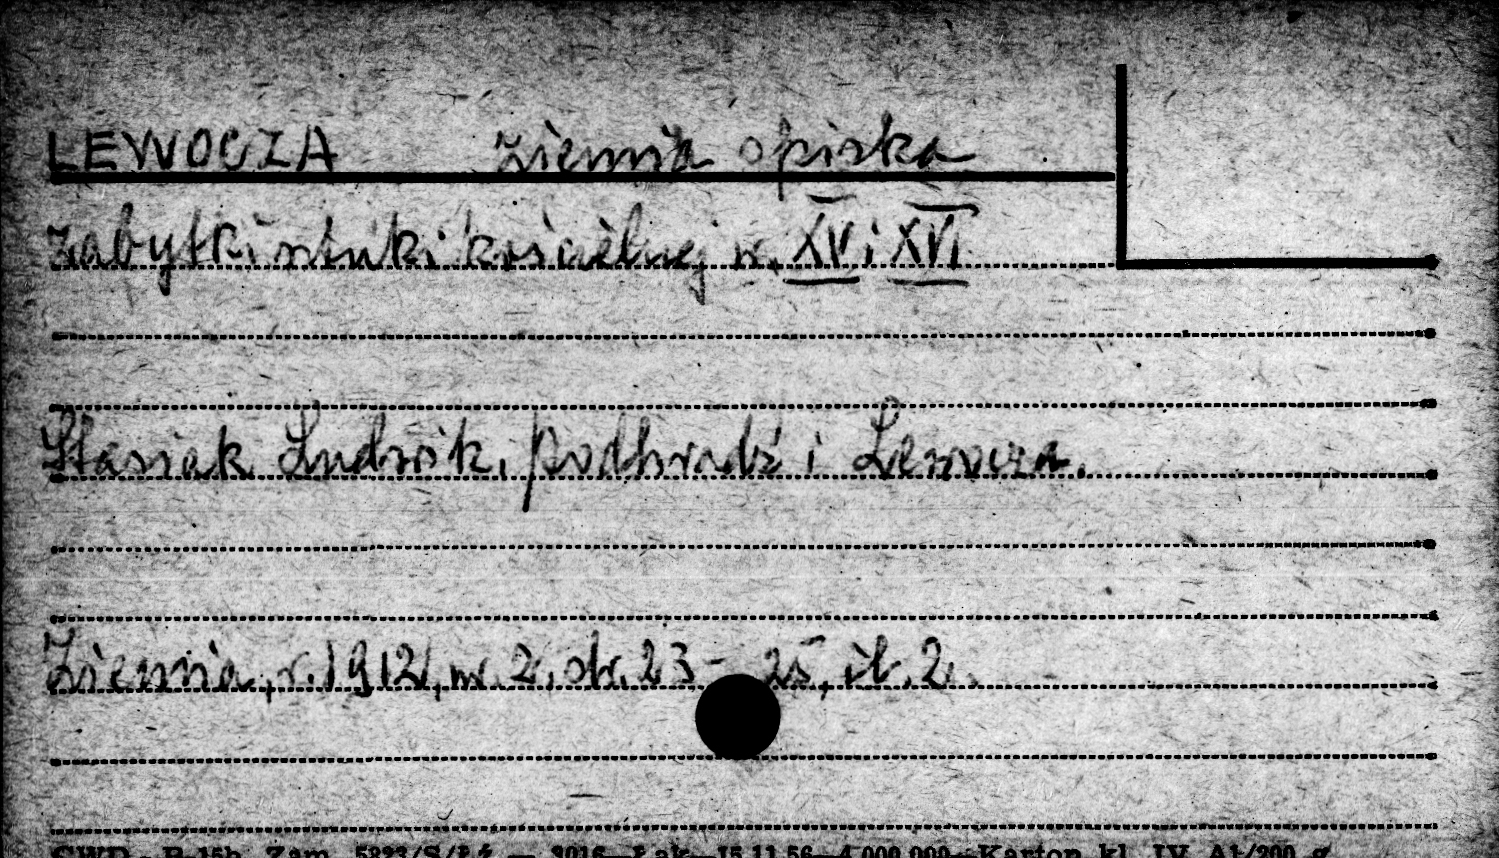 LEWOCZA ziemia spiska
zabytki sztuki kościelnej w. XV i XVI
Stasiak Ludwik, Podhradź i Lewocza.
Ziemia, r. 1912, nr. 2, str. 23-25, il. 2.
CWD - P-15b. Zam. 5823/S/Łż — 3016—Łak—15.11.56—4.000.000—Karton kl. IV. A1/200 g